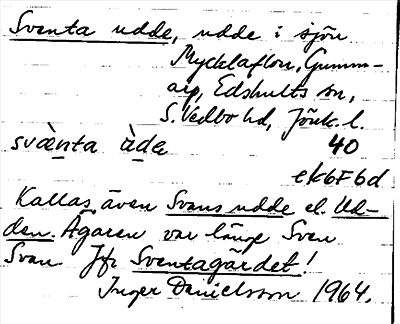 Sventa udde, udde i sjön
Mycklaflon, Gumm-
arp, Edshults sn,
S. Vedbo hd, Jönk. l.
svænta ùde 40
ek6F6d
Kallas även Svans udde el. Ud-
den. Ägaren var länge Sven
Svan Jfr Sventagärdet!
Inger Danielsson 1964.